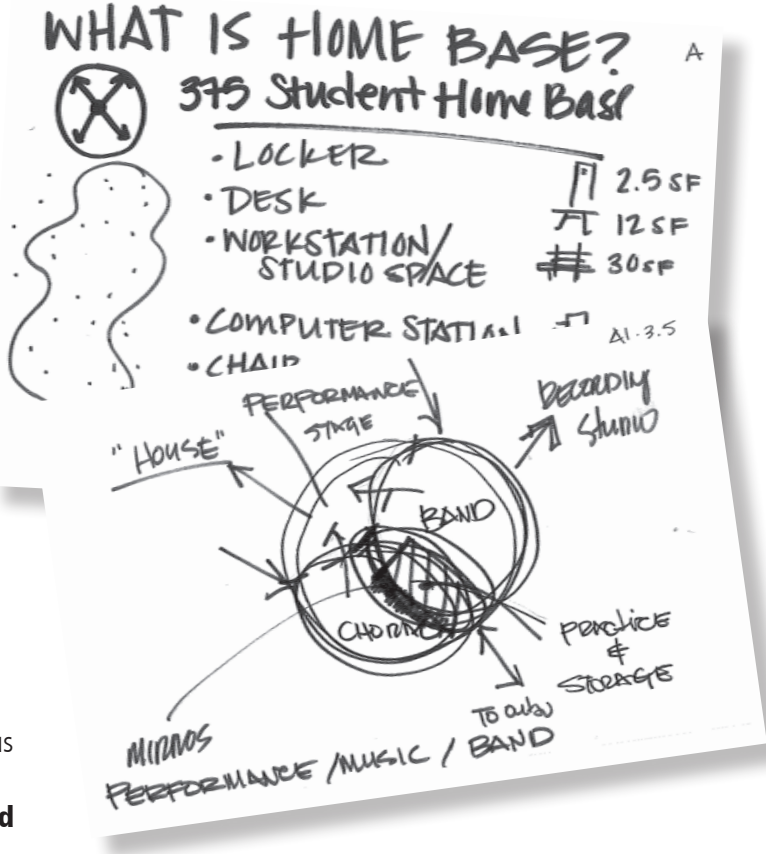 WHAT IS HOME BASE?
A
375 Student Home Base
• LOCKER
2.5 SF
• DESK
12 SF
• WORKSTATION/
STUDIO SPACE
30 SF
• COMPUTER STATION
A1.3.5
• CHAIR
PERFORMANCE
STAGE
RECORDING
Studio
"HOUSE"
BAND
CHORAL
PRACTICE
&
STORAGE
To
MIRRORS
PERFORMANCE / MUSIC / BAND